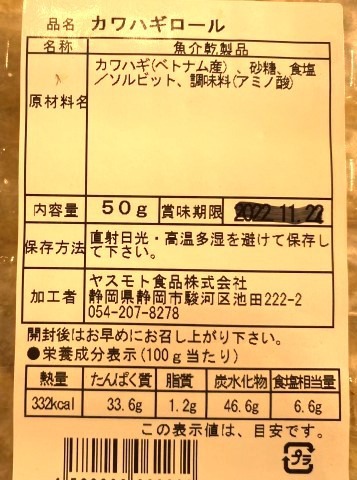 品名 カワハギロール
名称 魚介乾製品
原材料名 カワハギ(ベトナム産)、砂糖、食塩
／ソルビット、調味料(アミノ酸)
内容量 50g 賞味期限 2022.11.22
保存方法 直射日光・高温多湿を避けて保存し
て下さい。
加工者 ヤスモト食品株式会社
静岡県静岡市駿河区池田222-2
054-207-8278
開封後はお早めにお召し上がり下さい。
●栄養成分表示(100g当たり)
熱量 たんぱく質 脂質 炭水化物 食塩相当量
332kcal 33.6g 1.2g 46.6g 6.6g
この表示値は、目安です。
プラ